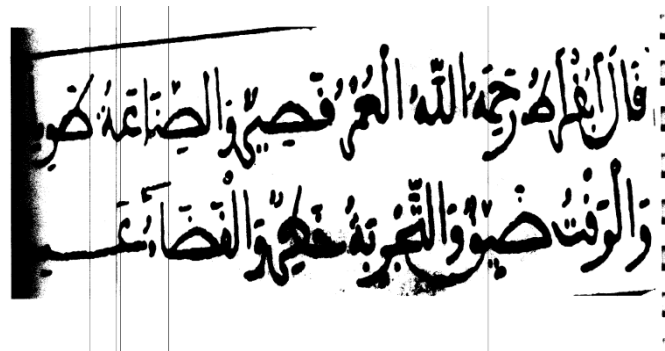 قَالَ ابُقْرَاطُ رَحِمَهُ اللَّهُ الْعُمْرُ قَصِيرٌ وَالصِّنَاعَةُ طَوِيـ
وَالْوَقْتُ ضَيِّقٌ وَالتَّجْرِبَةُ خَطَرٌ وَالْقَضَاءُ عَسِيـ